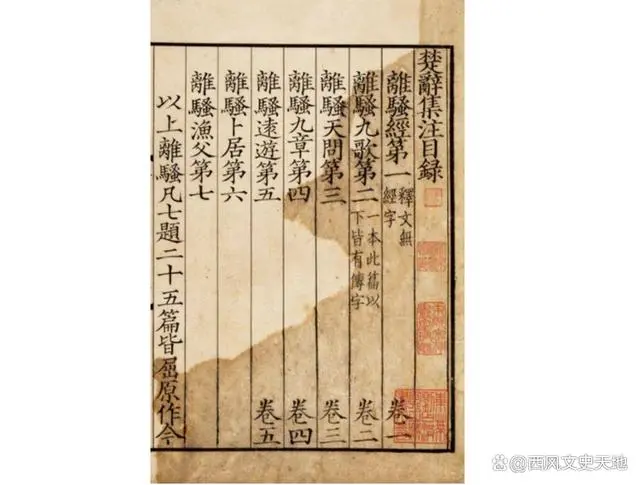 楚辭集注目錄
離騷經第一 釋文無經字 卷一
離騷九歌第二 一本此篇以下皆有傳字 卷二
離騷天問第三 卷三
離騷九章第四 卷四
離騷遠遊第五 卷五
離騷卜居第六
離騷漁父第七
以上離騷凡七題二十五篇皆屈原作今
西风文史天地